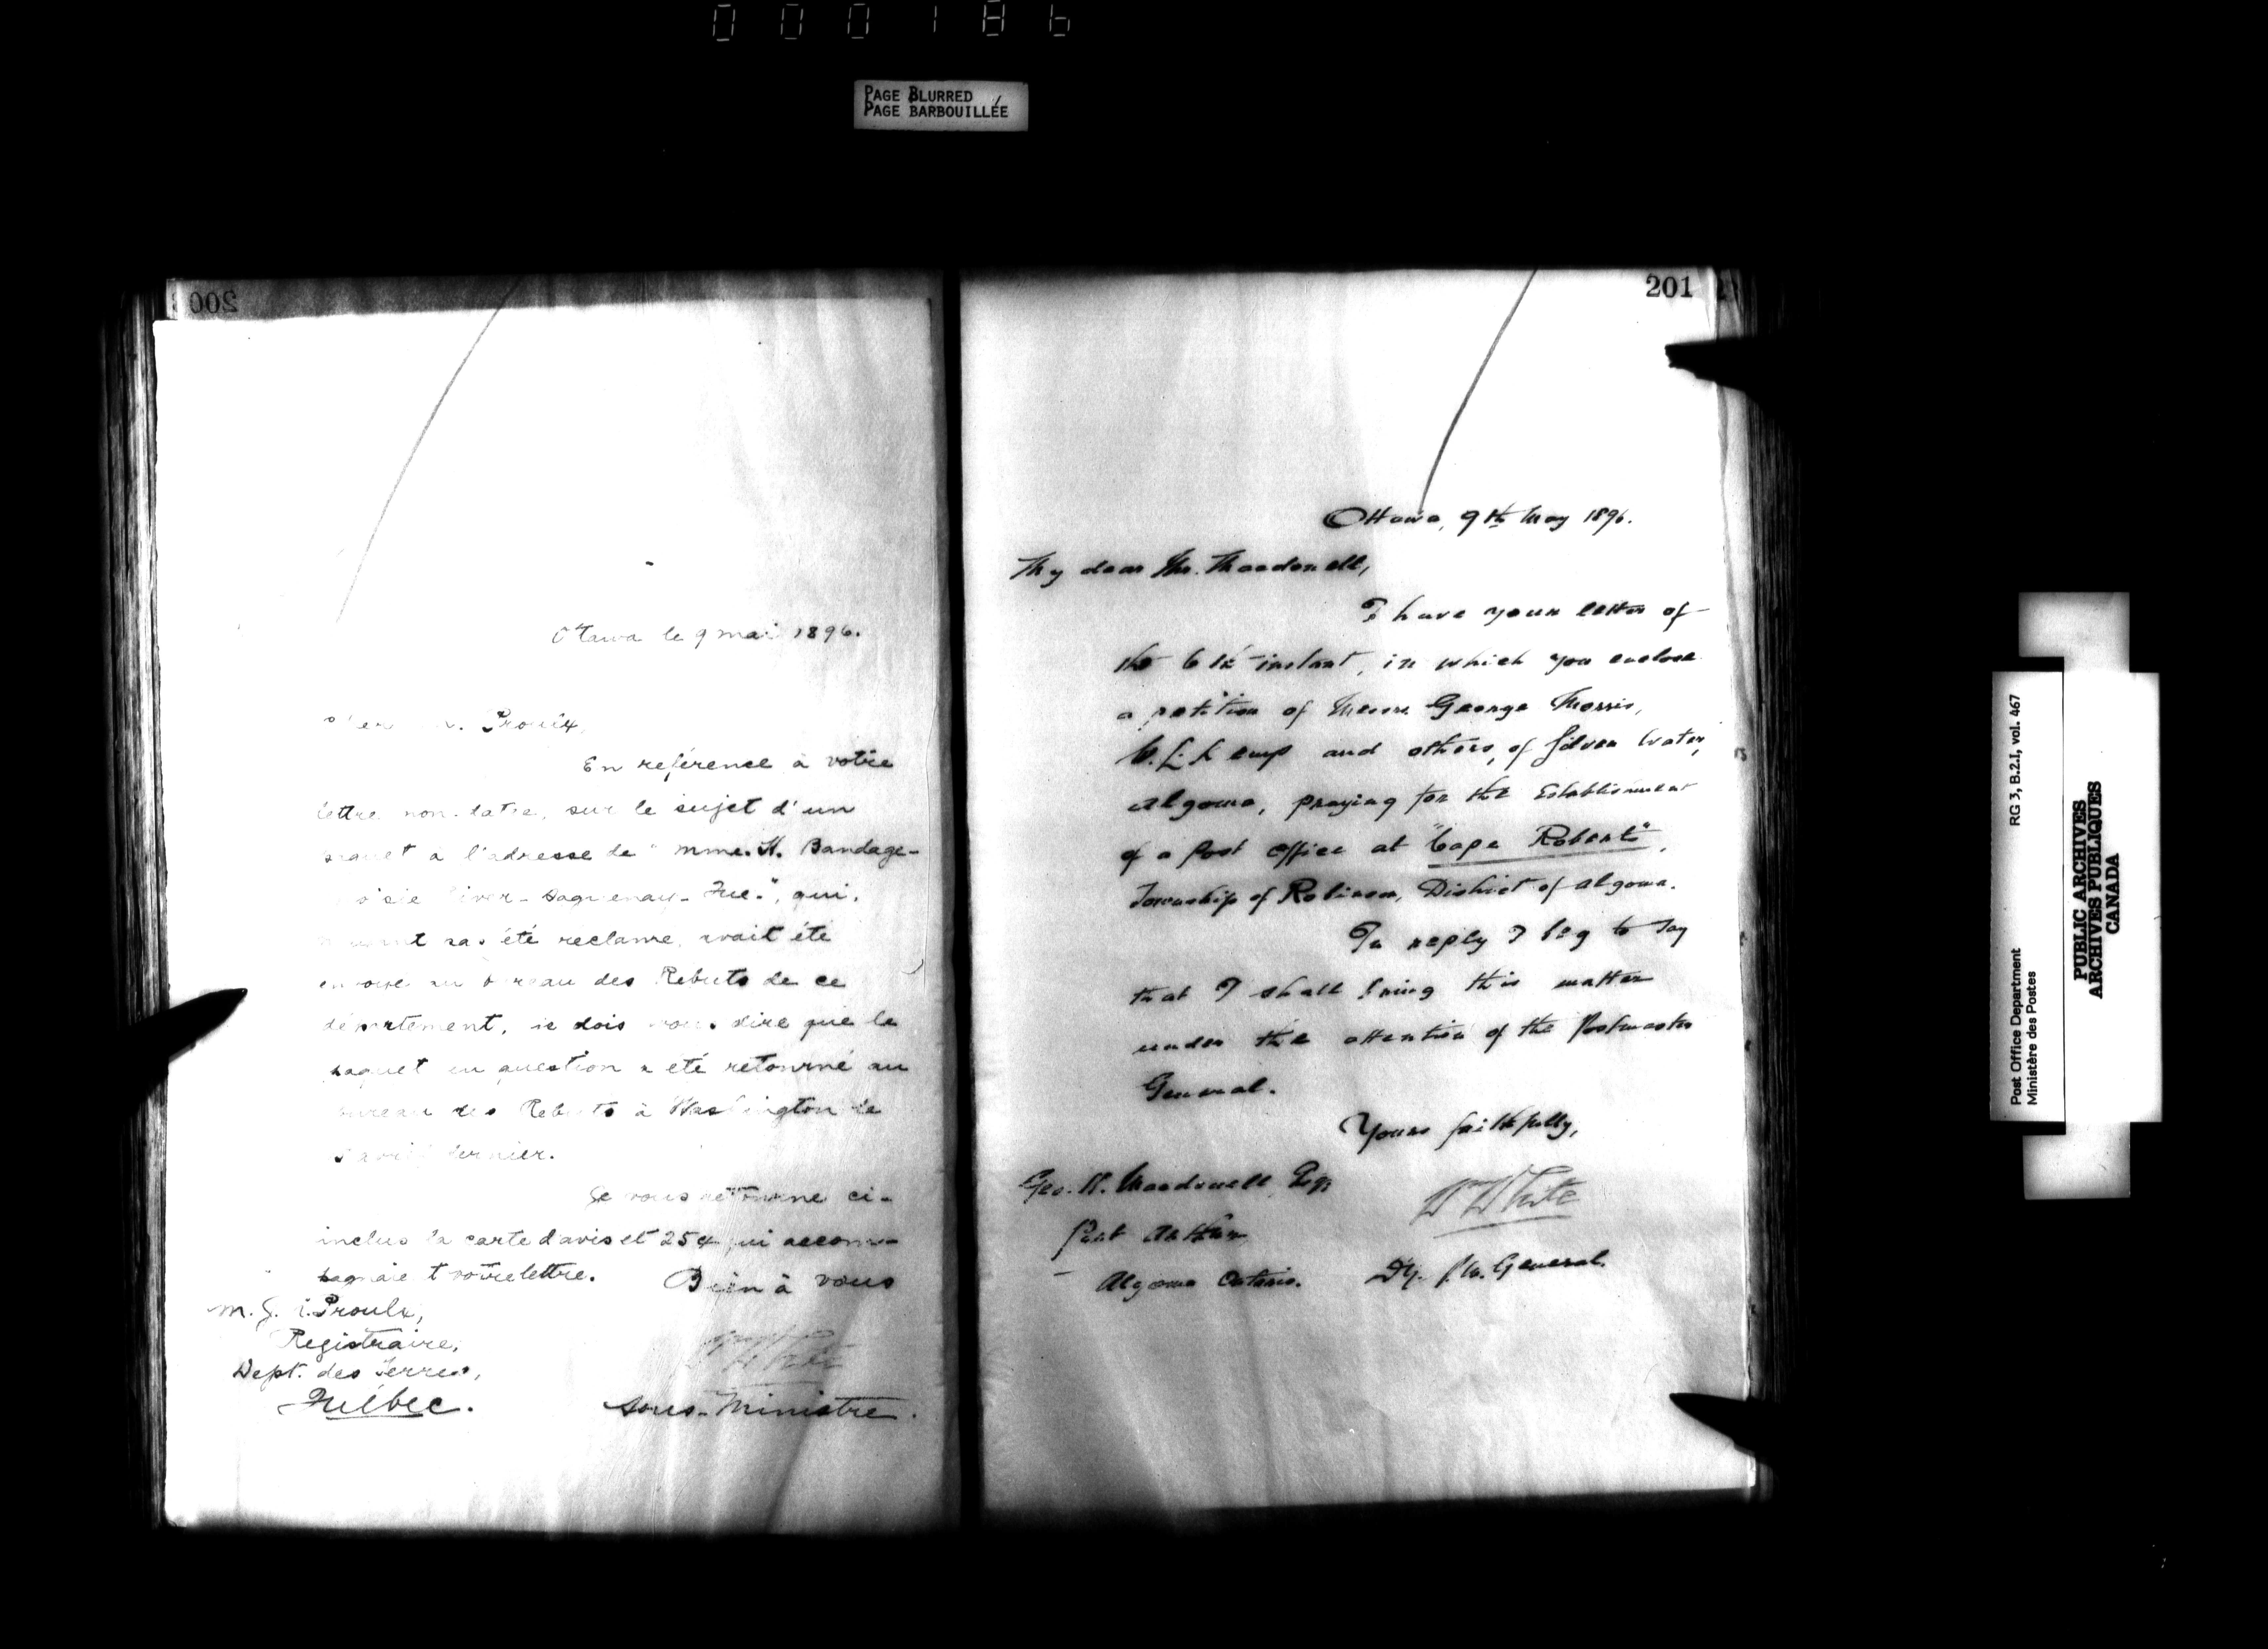 000186
PAGE BLURRED
PAGE BARBOUILLÉE
200
Ottawa le 9 mai 1896.
Proulx,
En référence à votre
lettre non-datée, sur le sujet d'un
paquet a l'adresse de "Mme. H. Bandage-
Saguenay - Que.", qui,
pas été reclamé, avait été
envoyé au bureau des Rebuts de ce
département, je dois vous dire que le
paquet en question a été retourné au
bureau des Rebuts à Washington le
avril dernier.
Je vous retourne ci-
inclus la carte d'avis et 25¢ qui accom-
pagnaient votre lettre.
Bien à vous
M. Proulx,
Registraire,
Dept. des Terres,
Québec.
Wm White
Sous-Ministre.
201
Ottawa, 9th May 1896.
My dear Mr. Macdonell,
I have your letter of
the 6th instant, in which you enclose
a petition of Messrs George Morris,
and others, of Silver Water,
Algoma, praying for the Establishment
of a Post Office at "Cape Robert",
Township of Robinson, District of Algoma.
In reply I beg to say
that I shall bring this matter
under the attention of the Postmaster
General.
Yours faithfully,
Geo. H. Macdonell Esq;
Port Arthur
Algoma Ontario.
Wm White
Dy. P.M. General.
Post Office Department RG 3, B.2.I, vol. 467
Ministère des Postes
PUBLIC ARCHIVES
ARCHIVES PUBLIQUES
CANADA